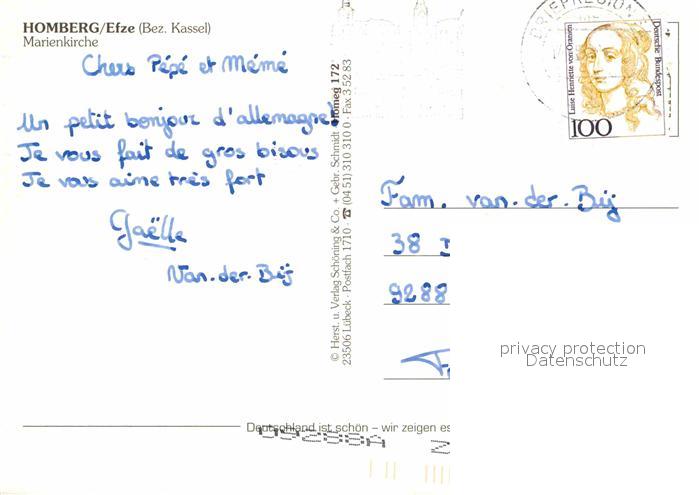 HOMBERG/Efze (Bez. Kassel)
Marienkirche
Chers Pépé et Mémé
Un petit bonjour d'allemagne!
Je vous fait de gros bisous
Je vous aime très fort
Gaëlle
Van-der-Bij
© Herst. u. Verlag Schöning & Co. + Gebr. Schmidt
23506 Lübeck · Postfach 1710 · ☎ (04 51) 310 310 0 · Fax 3 52 83
Homeg 172
BRIEFREGION
Luise Henriette von Oranien
Deutsche Bundespost
100
Fam. van-der-Bij
38
9288
privacy protection
Datenschutz
Deutschland ist schön – wir zeigen es